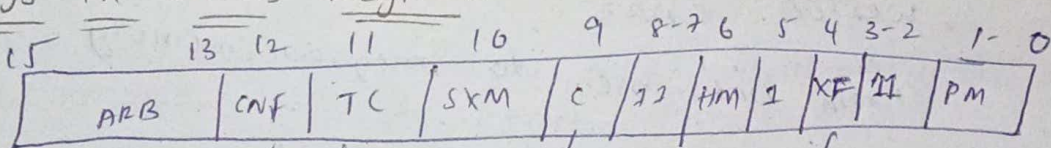 15 13 12 11 10 9 8-7 6 5 4 3-2 1- 0
ARB CNF TC SXM C 11 HM 1 XF 11 PM